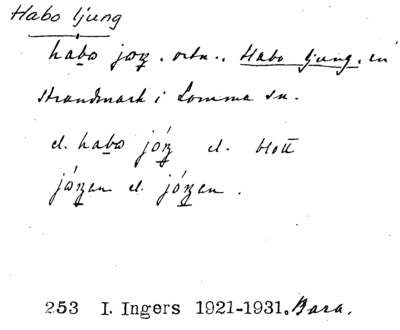 Habo ljung
habo jöŋ. ortn.. Habo ljung, en
strandmark i Lomma sn.
el. habo jóŋ el. blott
jóŋen el. jóŋen.
253 I. Ingers 1921-1931. Bara.